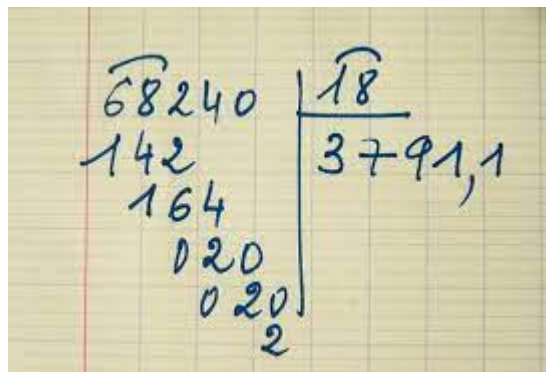 68240 | 18
142 3791,1
164
020
020
2